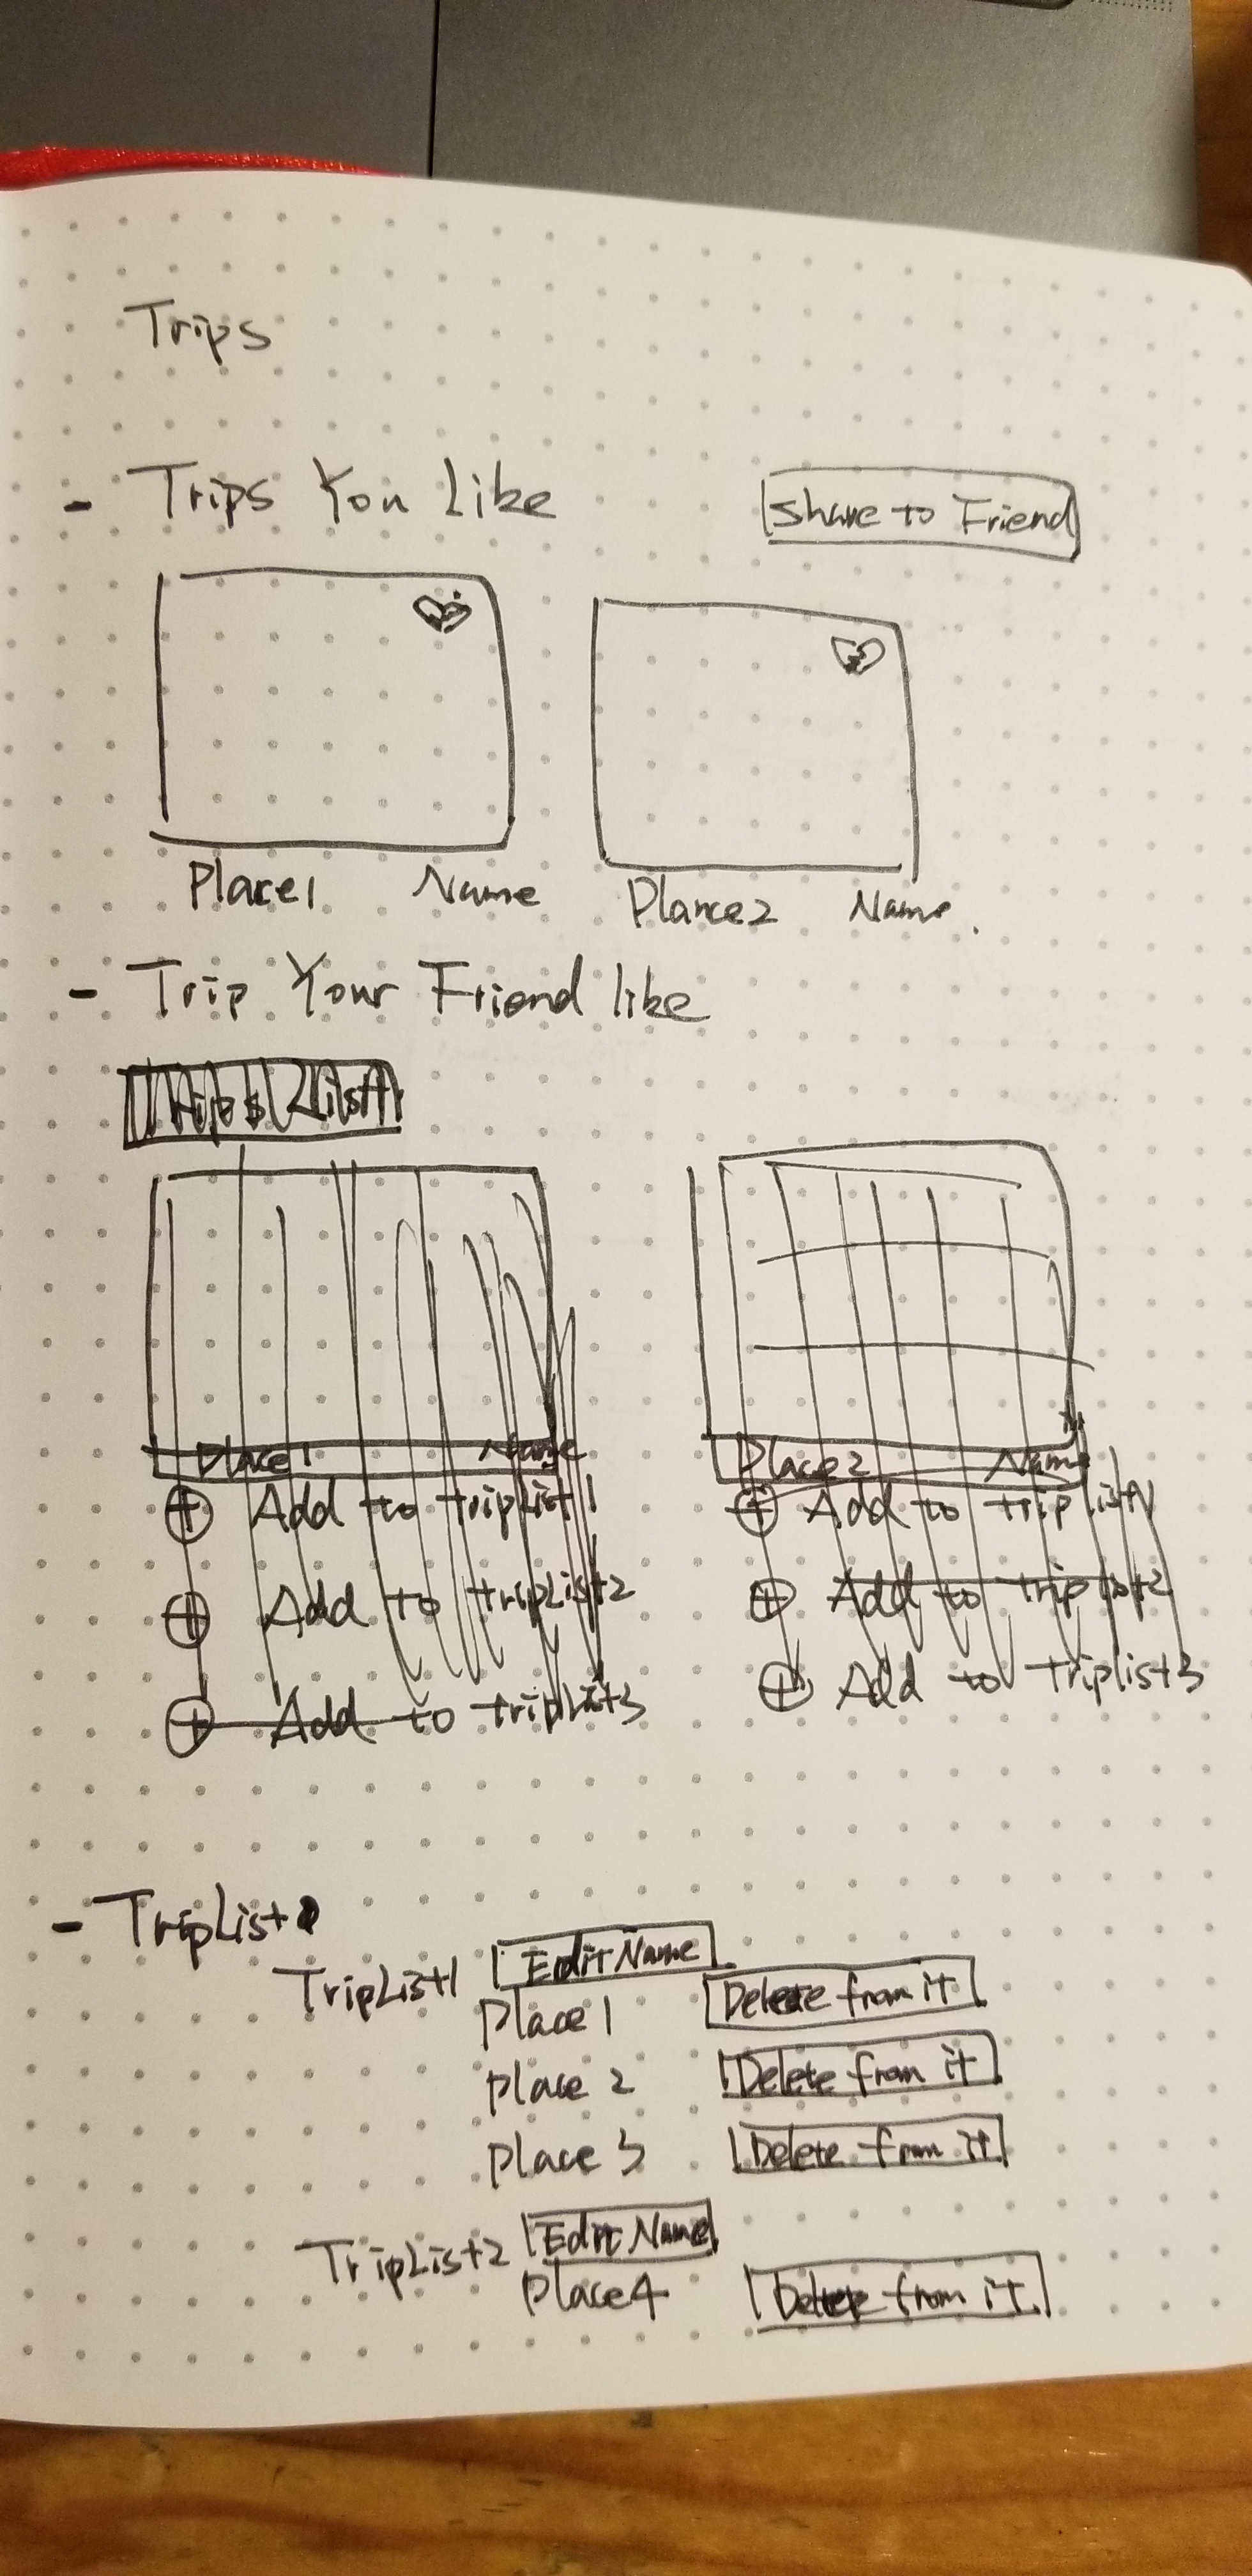 Trips
- Trips You Like
Share to Friend
Place1 Name
Plance2 Name.
- Trip Your Friend like
Place1 Name
Place2 Name
Add to tripList1
Add to tripList2
Add to tripList3
Add to triplist1
Add to triplist2
Add to triplist3
- TripList
TripList1 Edit Name
Place 1 Delete from it
Place 2 Delete from it
Place 3 Delete from it
TripList2 Edit Name
Place4 Delete from it